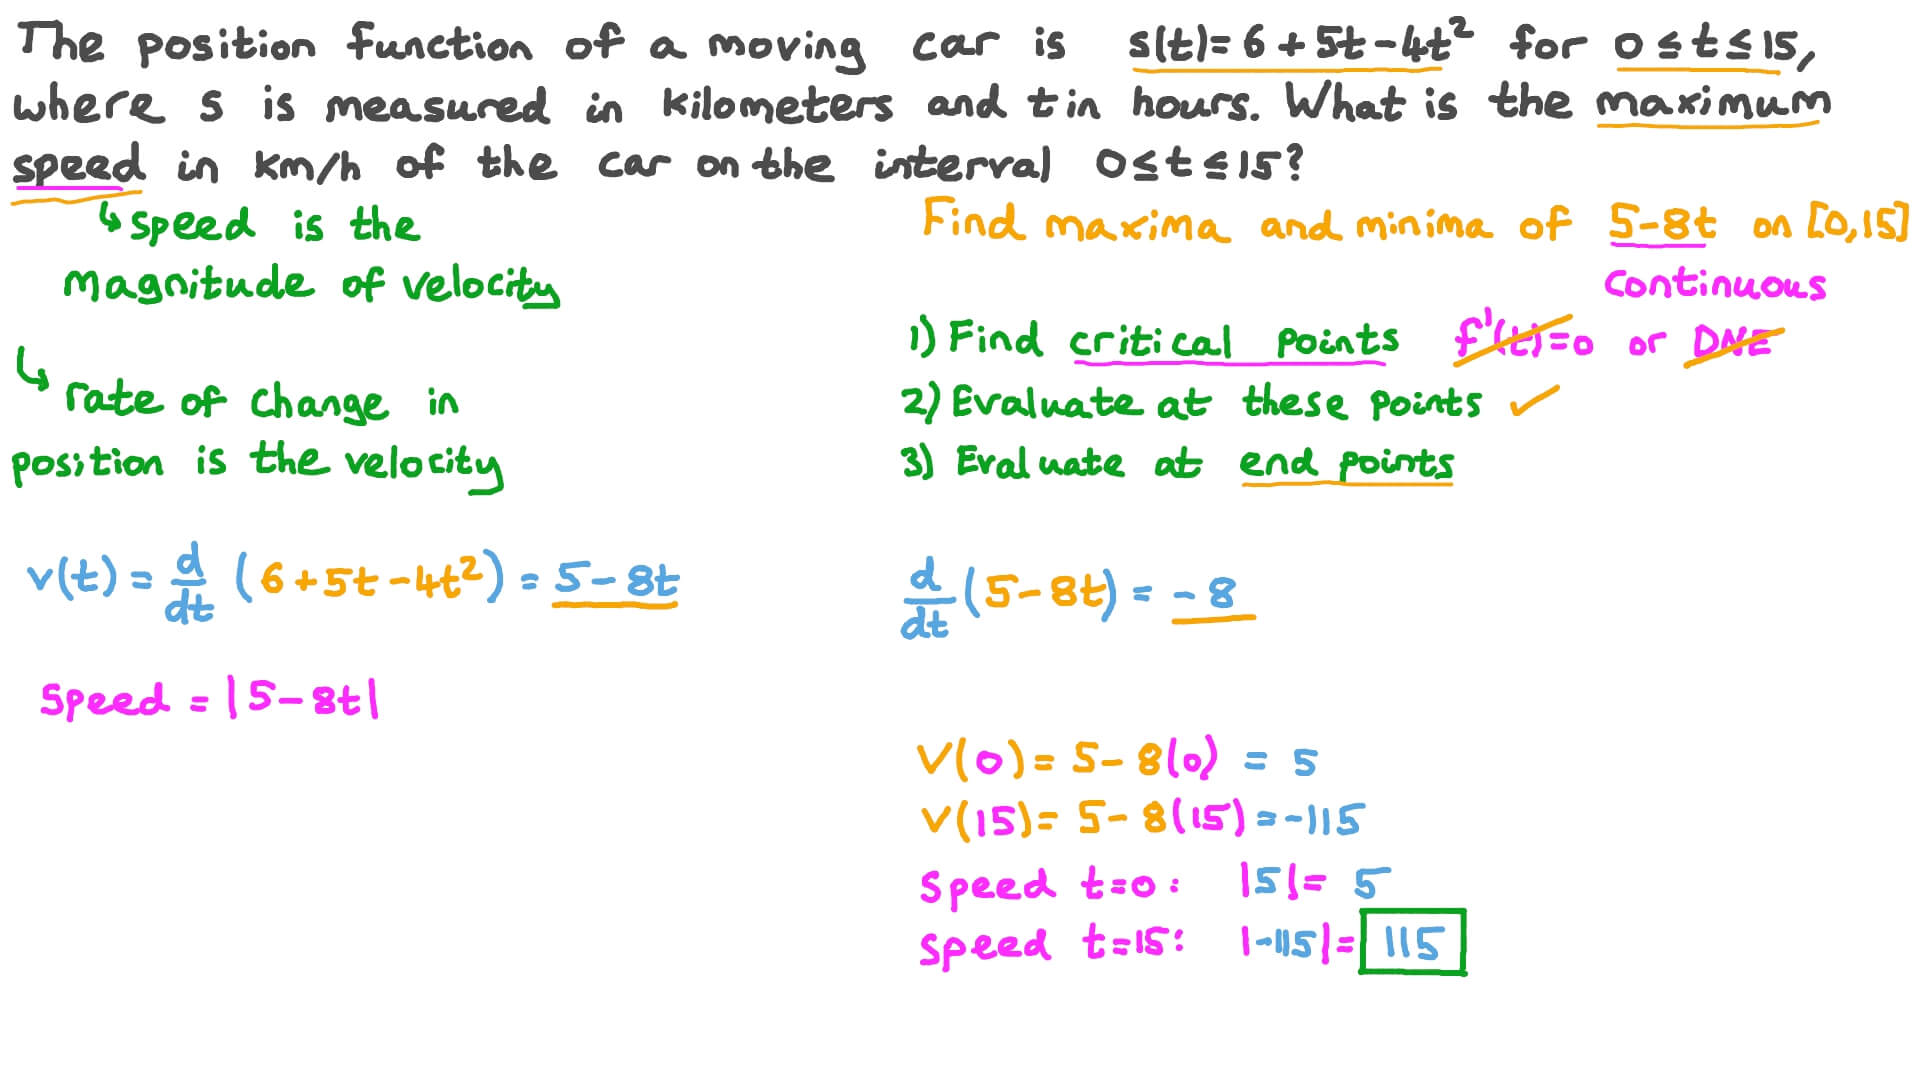 The position function of a moving car is s(t)= 6 + 5t - 4t² for 0 ≤ t ≤ 15,
where s is measured in kilometers and t in hours. What is the maximum
speed in km/h of the car on the interval 0 ≤ t ≤ 15?
↳ speed is the
magnitude of velocity
↳ rate of change in
position is the velocity
v(t) = d/dt (6 + 5t - 4t²) = 5 - 8t
speed = |5 - 8t|
Find maxima and minima of 5 - 8t on [0,15]
continuous
1) Find critical points f'(t)=0 or DNE
2) Evaluate at these points ✓
3) Evaluate at end points
d/dt (5 - 8t) = -8
V(0) = 5 - 8(0) = 5
V(15) = 5 - 8(15) = -115
speed t=0: |5| = 5
speed t=15: |-115| = 115